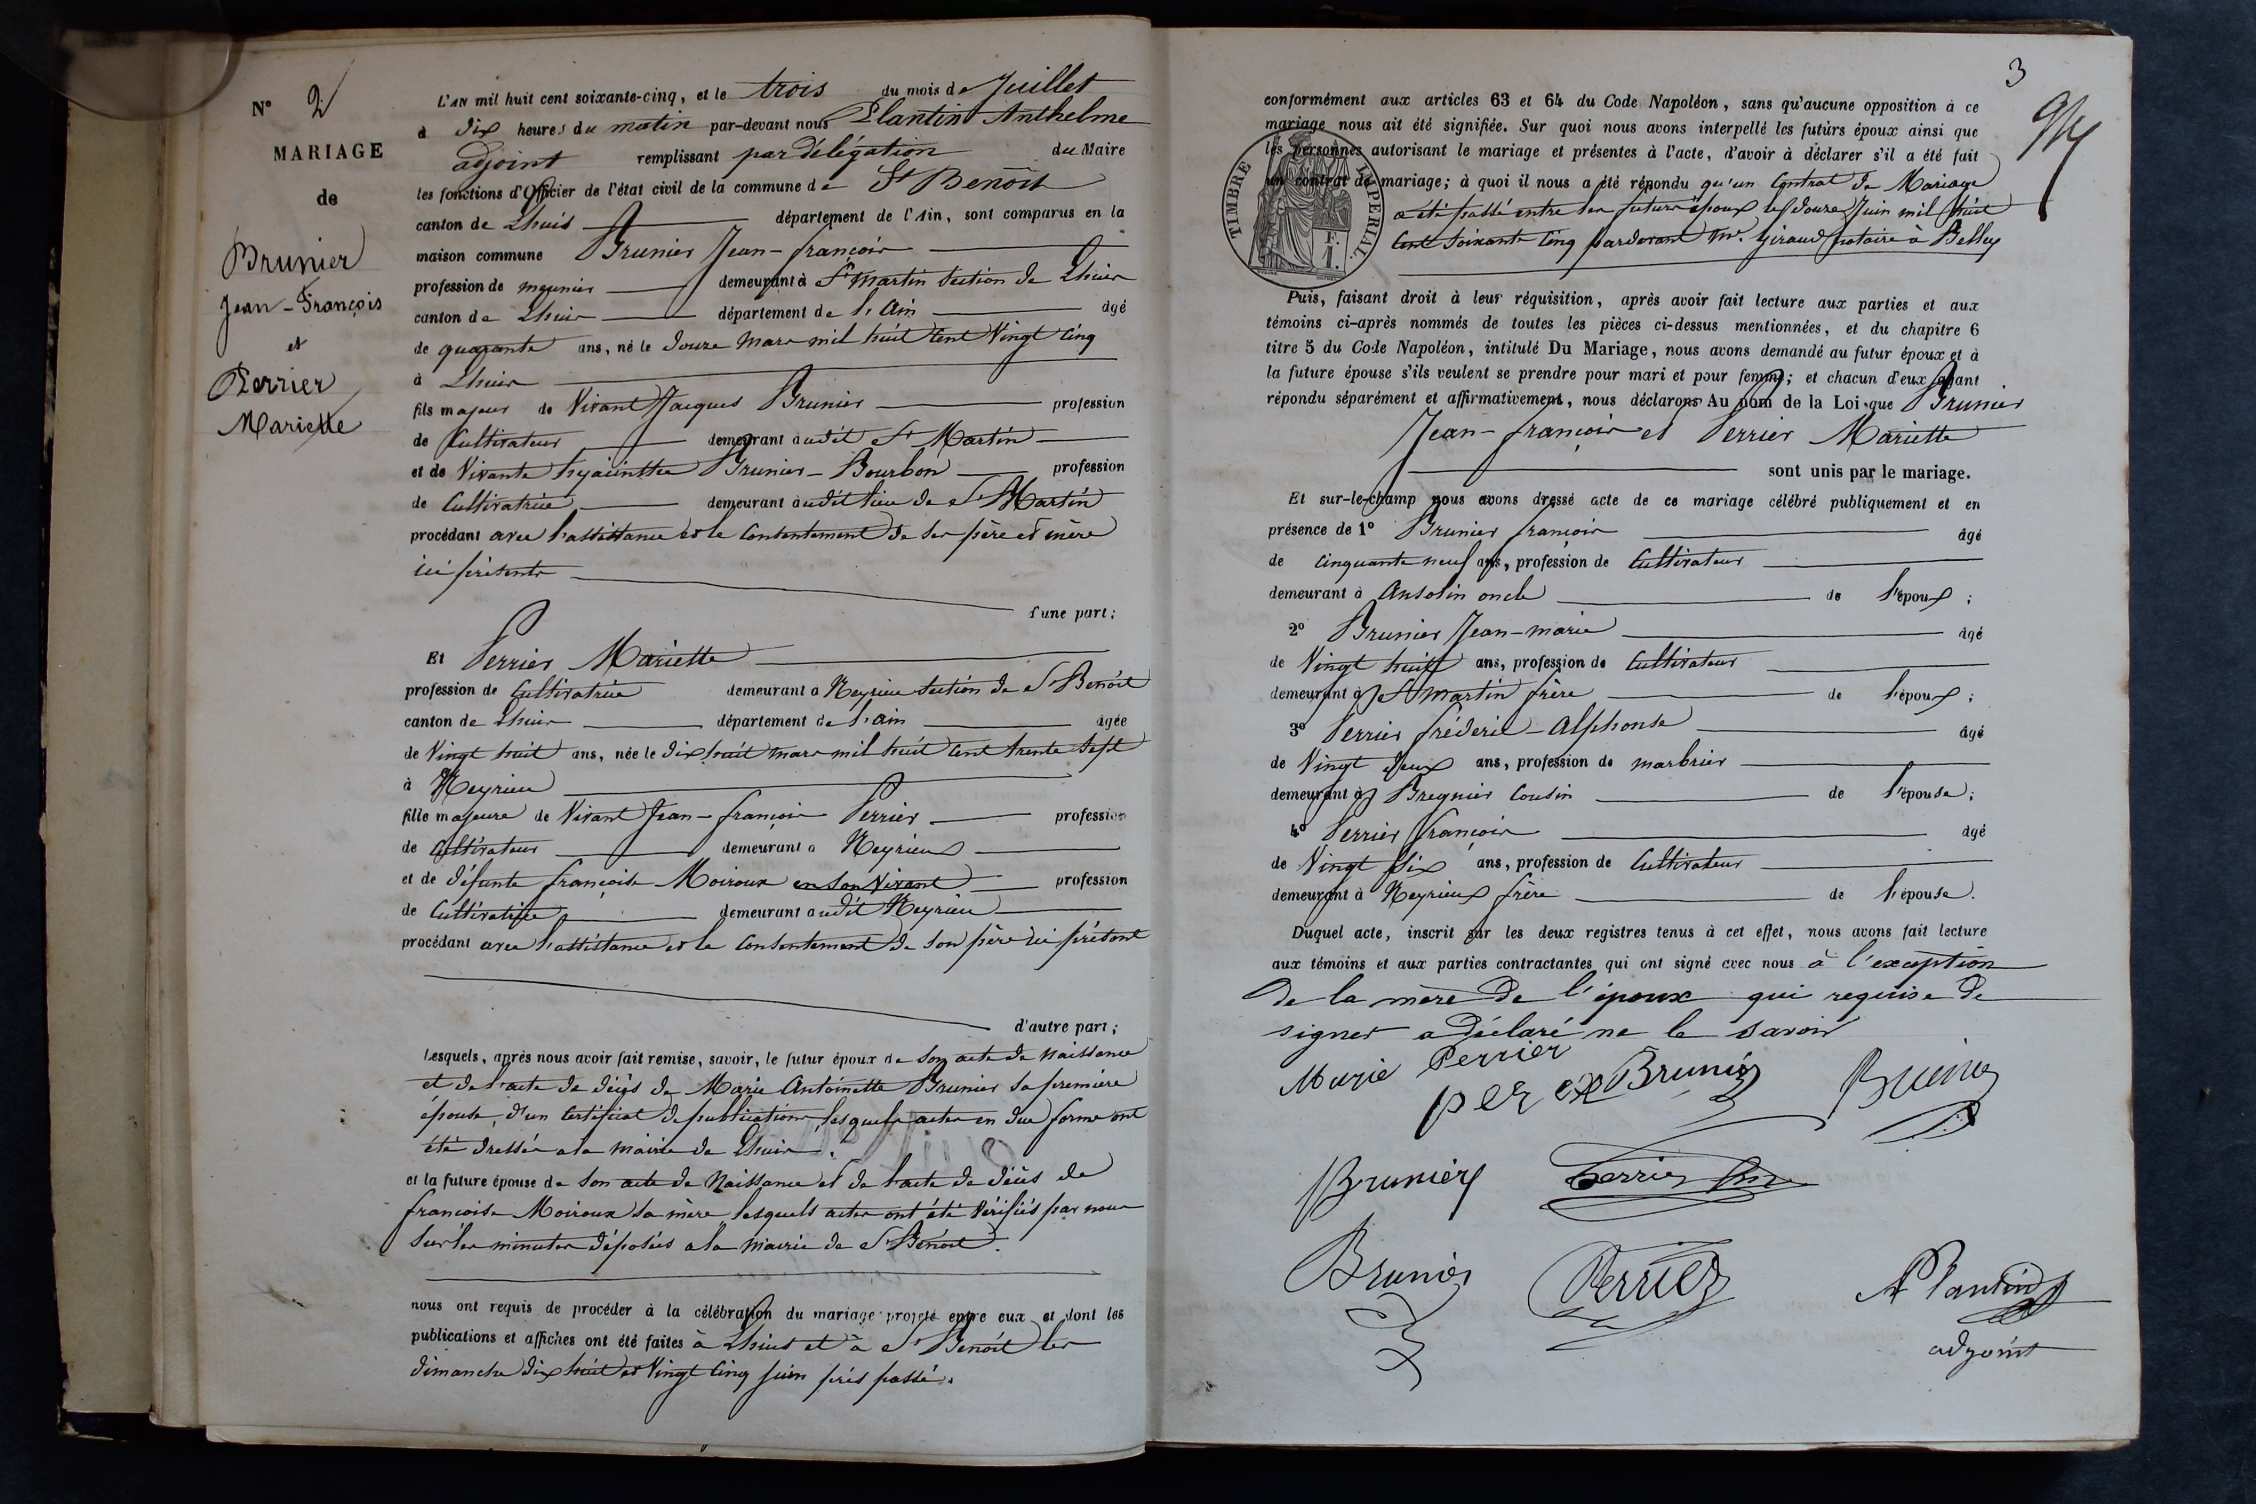 N° 2
MARIAGE
de
Brunier
Jean-François
et
Perrier
Mariette
L'AN mil huit cent soixante-cinq, et le trois du mois de Juillet
à dix heures du matin par-devant nous Plantin Anthelme
adjoint remplissant par délégation du Maire
les fonctions d'Officier de l'état civil de la commune de St Benoit
canton de Lhuis département de l'Ain, sont comparus en la
maison commune Brunier Jean-françois
profession de meunier demeurant à St Martin section de Lhuis
canton de Lhuis département de l'Ain âgé
de quarante ans, né le douze mars mil huit cent vingt cinq
à Lhuis
fils majeur de Vivant Jacques Brunier profession
de Cultivateur demeurant audit St Martin
et de Vivante hyacinthe Brunier-Bourbon profession
de Cultivatrice demeurant audit lieu de St Martin
procédant avec l'assistance et le consentement de ses père et mère
ici présents
d'une part;
Et Perrier Mariette
profession de Cultivatrice demeurant à Neyrieu section de St Benoit
canton de Lhuis département de l'ain âgée
de Vingt huit ans, née le dix huit mars mil huit cent trente sept
à Neyrieu
fille majeure de Vivant Jean-françois Perrier profession
de Cultivateur demeurant à Neyrieux
et de défunte françoise Moiroux en son vivant profession
de Cultivatrice demeurant audit Neyrieu
procédant avec l'assistance et le consentement de son père ici présent
d'autre part;
Lesquels, après nous avoir fait remise, savoir, le futur époux de son acte de naissance
et de l'acte de décès de Marie Antoinette Brunier sa première
épouse, d'un certificat de publication, lesquels actes en due forme ont
été dressés a la mairie de Lhuis.
et la future épouse de son acte de Naissance et de l'acte de décès de
françoise Moiroux sa mère lesquels actes ont été vérifiés par nous
sur les minutes déposées a la mairie de St Benoit.
nous ont requis de procéder à la célébration du mariage projeté entre eux et dont les
publications et affiches ont été faites à Lhuis et à St Benoit les
dimanche dix huit et vingt cinq juin près passé.
3
conformément aux articles 63 et 64 du Code Napoléon, sans qu'aucune opposition à ce
mariage nous ait été signifiée. Sur quoi nous avons interpellé les futurs époux ainsi que
les personnes autorisant le mariage et présentes à l'acte, d'avoir à déclarer s'il a été fait
un contrat de mariage; à quoi il nous a été répondu qu'un Contrat de Mariage
a été passé entre les futurs époux le douze Juin mil huit
cent soixante cinq pardevant me. Giraud notaire à Belley
TIMBRE IMPERIAL
F.
1.
Puis, faisant droit à leur réquisition, après avoir fait lecture aux parties et aux
témoins ci-après nommés de toutes les pièces ci-dessus mentionnées, et du chapitre 6
titre 5 du Code Napoléon, intitulé Du Mariage, nous avons demandé au futur époux et à
la future épouse s'ils veulent se prendre pour mari et pour femme; et chacun d'eux ayant
répondu séparément et affirmativement, nous déclarons Au nom de la Loi que Brunier
Jean-françois et Perrier Mariette
sont unis par le mariage.
Et sur-le-champ nous avons dressé acte de ce mariage célébré publiquement et en
présence de 1° Brunier françois âgé
de cinquante neuf ans, profession de Cultivateur
demeurant à Ansolin oncle de l'époux;
2° Brunier Jean-marie âgé
de Vingt huit ans, profession de Cultivateur
demeurant à St martin frère de l'époux;
3° Perrier fréderic-Alphonse âgé
de Vingt deux ans, profession de marbrier
demeurant à Bregnier Cousin de l'épouse;
4° Perrier françois âgé
de Vingt six ans, profession de Cultivateur
demeurant à Neyrieux frère de l'épouse.
Duquel acte, inscrit sur les deux registres tenus à cet effet, nous avons fait lecture
aux témoins et aux parties contractantes qui ont signé avec nous à l'exception
de la mère de l'époux qui requise de
signer a déclaré ne le savoir
Marie Perrier
perex Brunier Brunier
Brunier Perrier
Brunier Perrier A Plantin
adjoint